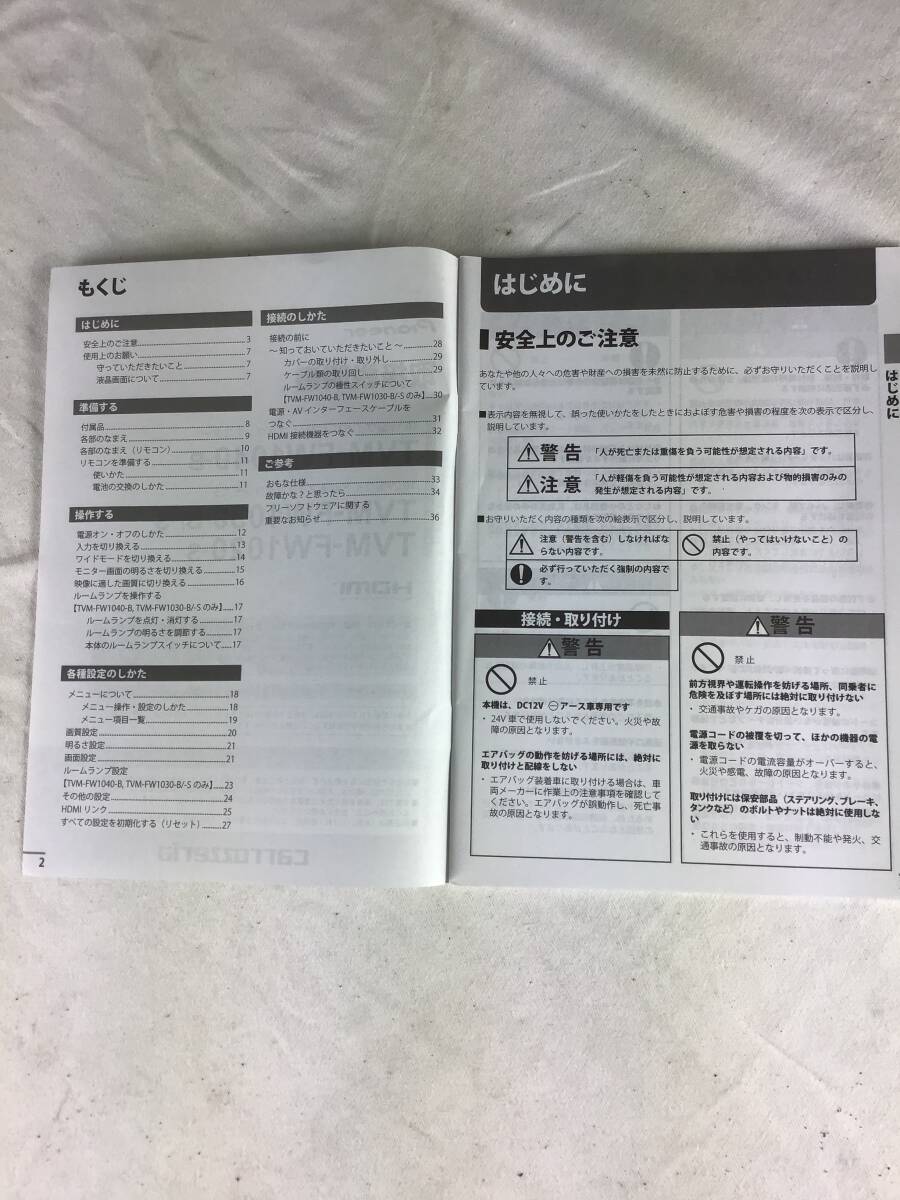 もくじ
はじめに
安全上のご注意 3
使用上のお願い 7
守っていただきたいこと 7
液晶画面について 7
準備する
付属品 8
各部のなまえ 9
各部のなまえ（リモコン） 10
リモコンを準備する 11
使いかた 11
電池の交換のしかた 11
操作する
電源オン・オフのしかた 12
入力を切り換える 13
ワイドモードを切り換える 14
モニター画面の明るさを切り換える 15
映像に適した画質に切り換える 16
ルームランプを操作する
【TVM-FW1040-B, TVM-FW1030-B/-S のみ】 17
ルームランプを点灯・消灯する 17
ルームランプの明るさを調節する 17
本体のルームランプスイッチについて 17
各種設定のしかた
メニューについて 18
メニュー操作・設定のしかた 18
メニュー項目一覧 19
画質設定 20
明るさ設定 21
画面設定 21
ルームランプ設定
【TVM-FW1040-B, TVM-FW1030-B/-S のみ】 23
その他の設定 24
HDMI リンク 25
すべての設定を初期化する（リセット） 27
2
接続のしかた
接続の前に
～知っておいていただきたいこと～ 28
カバーの取り付け・取り外し 29
ケーブル類の取り回し 29
ルームランプの極性スイッチについて
【TVM-FW1040-B, TVM-FW1030-B/-S のみ】 30
電源・AV インターフェースケーブルを
つなぐ 31
HDMI 接続機器をつなぐ 32
ご参考
おもな仕様 33
故障かな？と思ったら 34
フリーソフトウェアに関する
重要なお知らせ 36
はじめに
安全上のご注意
あなたや他の人々への危害や財産への損害を未然に防止するために、必ずお守りいただくことを説明し
ています。
■表示内容を無視して、誤った使いかたをしたときにおよぼす危害や損害の程度を次の表示で区分し、
説明しています。
警告 「人が死亡または重傷を負う可能性が想定される内容」です。
注意 「人が軽傷を負う可能性が想定される内容および物的損害のみの
発生が想定される内容」です。
■お守りいただく内容の種類を次の絵表示で区分し、説明しています。
注意（警告を含む）しなければな
らない内容です。
禁止（やってはいけないこと）の
内容です。
必ず行っていただく強制の内容で
す。
接続・取り付け
警告
禁止
本機は、DC12V アース車専用です
・ 24V 車で使用しないでください。火災や故
障の原因となります。
エアバッグの動作を妨げる場所には、絶対に
取り付けと配線をしない
・ エアバッグ装着車に取り付ける場合は、車
両メーカーに作業上の注意事項を確認して
ください。エアバッグが誤動作し、死亡事
故の原因となります。
警告
禁止
前方視界や運転操作を妨げる場所、同乗者に
危険を及ぼす場所には絶対に取り付けない
・ 交通事故やケガの原因となります。
電源コードの被覆を切って、ほかの機器の電
源を取らない
・ 電源コードの電流容量がオーバーすると、
火災や感電、故障の原因となります。
取り付けには保安部品（ステアリング、ブレーキ、
タンクなど）のボルトやナットは絶対に使用しな
い
・ これらを使用すると、制動不能や発火、交
通事故の原因となります。
はじめに